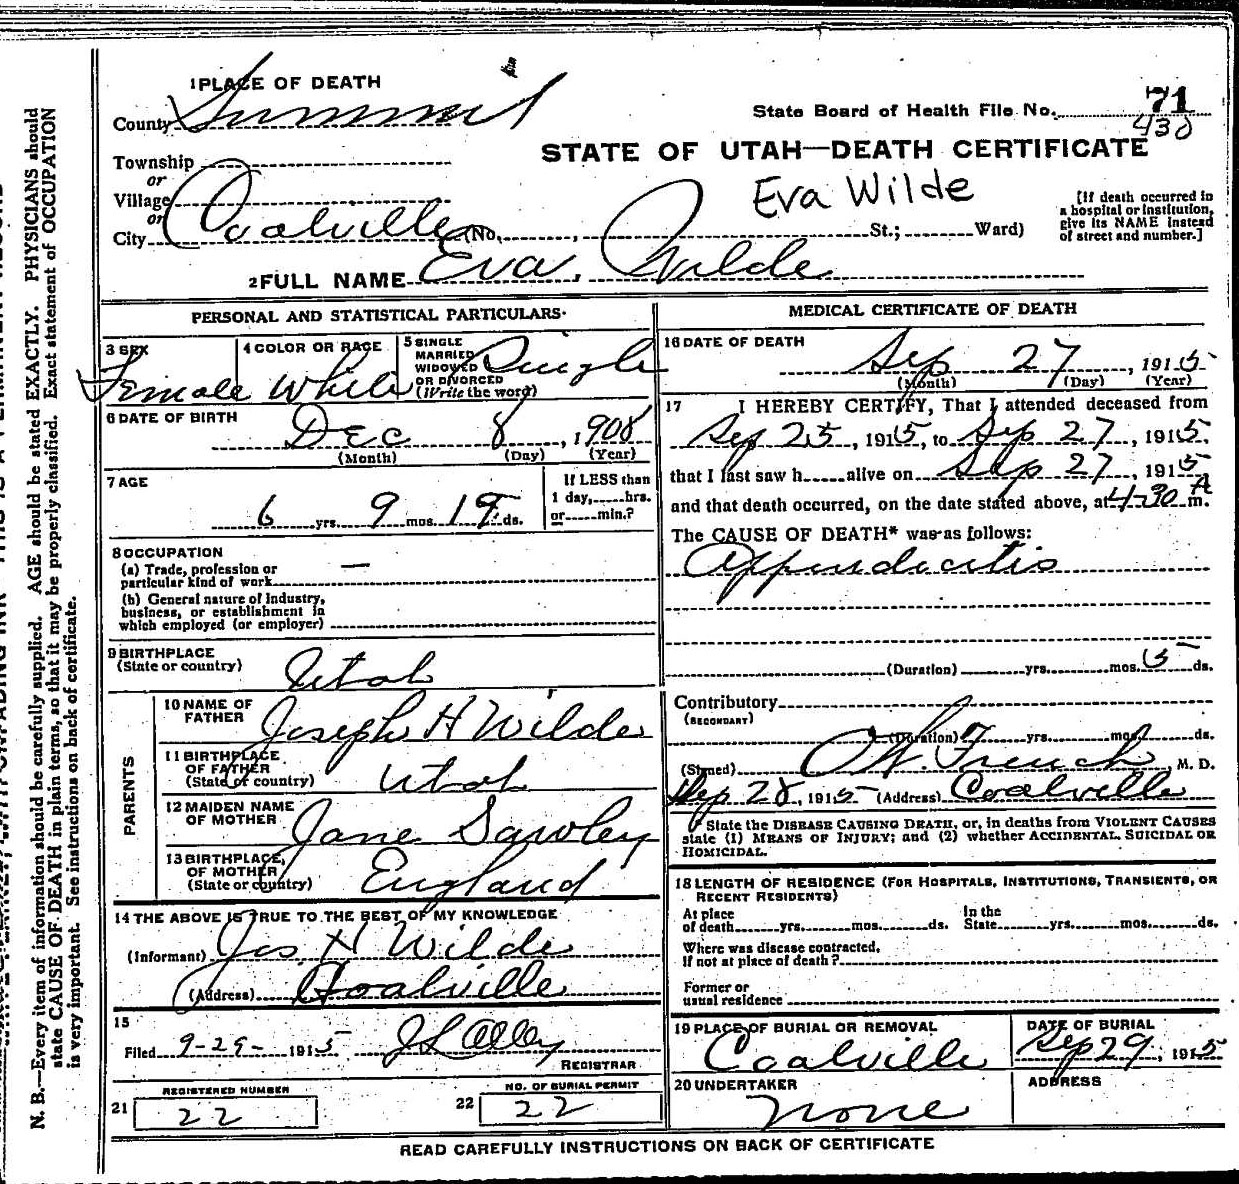 1 PLACE OF DEATH
County Summit
State Board of Health File No. 71
430
Township
or
Village
or
City Coalville (No. , St.; Ward)
STATE OF UTAH—DEATH CERTIFICATE
Eva Wilde
[If death occurred in
a hospital or institution,
give its NAME instead
of street and number.]
2 FULL NAME Eva Wilde
PERSONAL AND STATISTICAL PARTICULARS
3 SEX
Female
4 COLOR OR RACE
White
5 SINGLE
MARRIED
WIDOWED
OR DIVORCED
(Write the word)
Single
6 DATE OF BIRTH
Dec 8, 1908
(Month) (Day) (Year)
7 AGE
6 yrs. 9 mos. 19 ds.
If LESS than
1 day, hrs.
or min.?
8 OCCUPATION
(a) Trade, profession or
particular kind of work —
(b) General nature of industry,
business, or establishment in
which employed (or employer)
9 BIRTHPLACE
(State or country) Utah
PARENTS
10 NAME OF
FATHER Joseph H Wilde
11 BIRTHPLACE
OF FATHER
(State or country) Utah
12 MAIDEN NAME
OF MOTHER Jane Sawley
13 BIRTHPLACE,
OF MOTHER
(State or country) England
14 THE ABOVE IS TRUE TO THE BEST OF MY KNOWLEDGE
(Informant) Jos H Wilde
(Address) Coalville
15
Filed 9-29- 1915 J L Olley
REGISTRAR
REGISTERED NUMBER
21 22
NO. OF BURIAL PERMIT
22 22
MEDICAL CERTIFICATE OF DEATH
16 DATE OF DEATH
Sep 27, 1915
(Month) (Day) (Year)
17 I HEREBY CERTIFY, That I attended deceased from
Sep 25, 1915, to Sep 27, 1915.
that I last saw h alive on Sep 27, 1915
and that death occurred, on the date stated above, at 4-30 A m.
The CAUSE OF DEATH* was as follows:
Appendicitis
(Duration) yrs. mos. 5 ds.
Contributory
(SECONDARY)
(Duration) yrs. mos. ds.
(Signed) O W. French, M. D.
Sep 28, 1915 (Address) Coalville
State the DISEASE CAUSING DEATH, or, in deaths from VIOLENT CAUSES
state (1) MEANS OF INJURY; and (2) whether ACCIDENTAL, SUICIDAL OR
HOMICIDAL.
18 LENGTH OF RESIDENCE (FOR HOSPITALS, INSTITUTIONS, TRANSIENTS, OR
RECENT RESIDENTS)
At place
of death yrs. mos. ds.
In the
State yrs. mos. ds.
Where was disease contracted,
If not at place of death?
Former or
usual residence
19 PLACE OF BURIAL OR REMOVAL
Coalville
DATE OF BURIAL
Sep 29, 1915
20 UNDERTAKER
none
ADDRESS
READ CAREFULLY INSTRUCTIONS ON BACK OF CERTIFICATE
N. B.—Every item of information should be carefully supplied. AGE should be stated EXACTLY. PHYSICIANS should
state CAUSE OF DEATH in plain terms, so that it may be properly classified. Exact statement of OCCUPATION
is very important. See instructions on back of certificate.